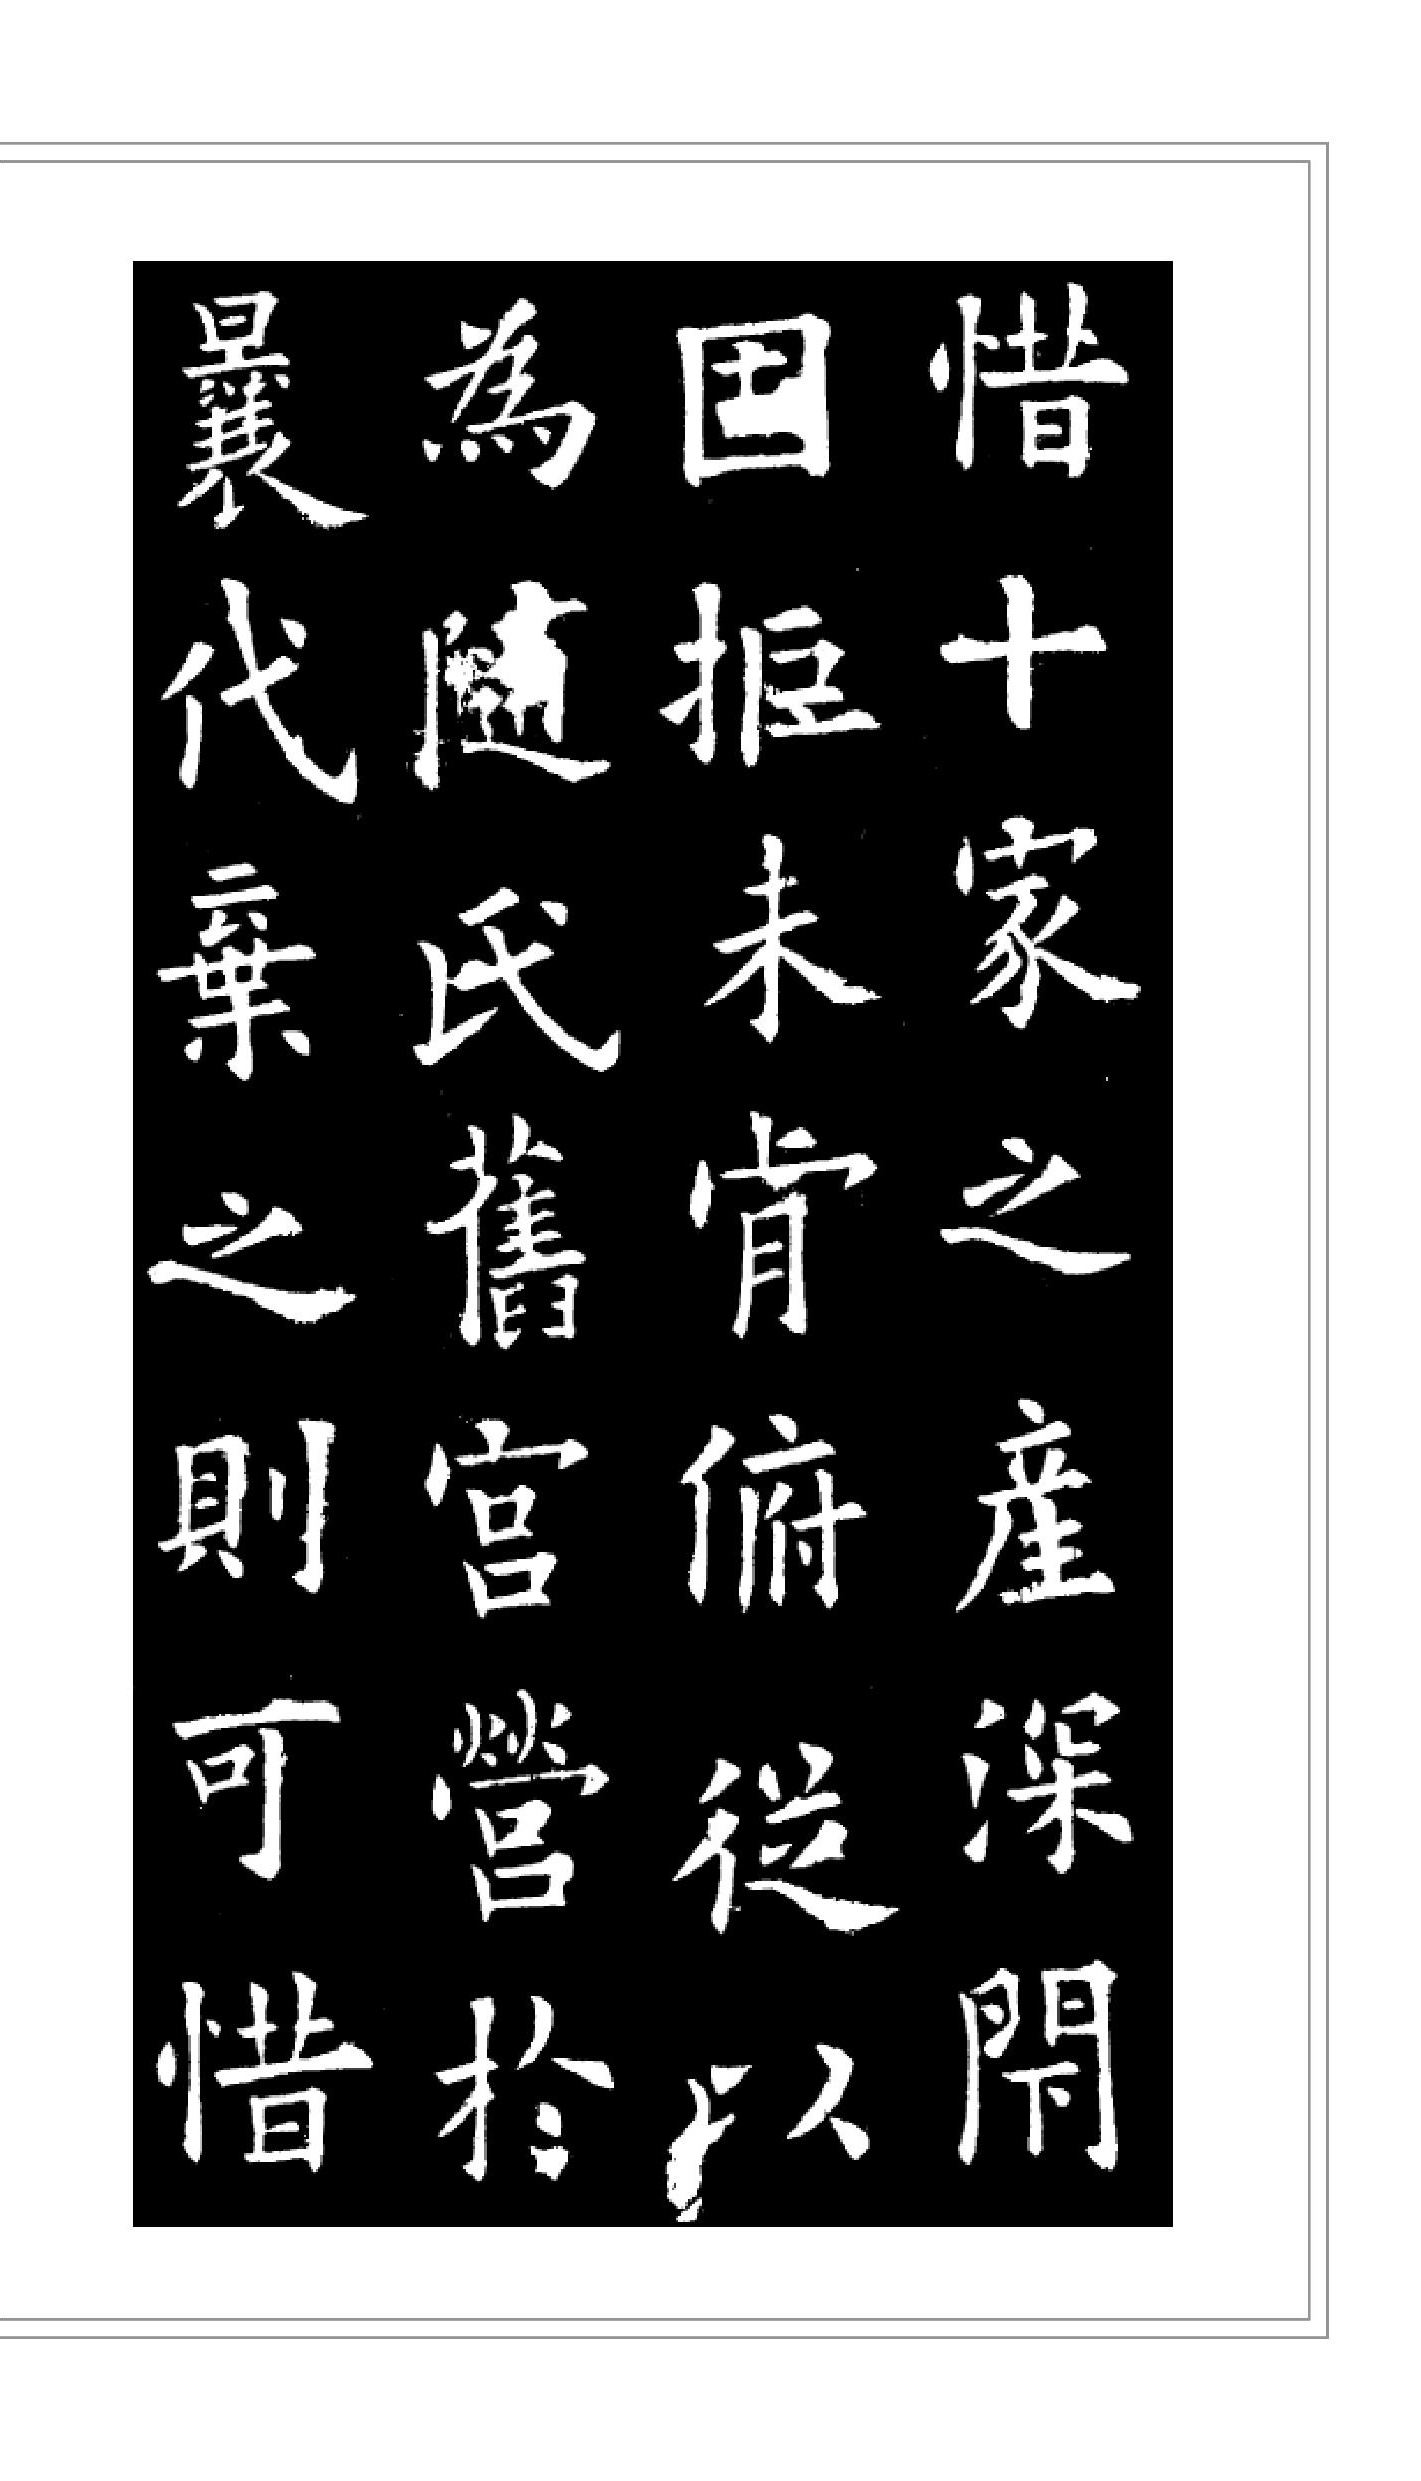 惜十家之産深閇
固拒未肯俯從以
為隨氏舊宮營於
曩代棄之則可惜